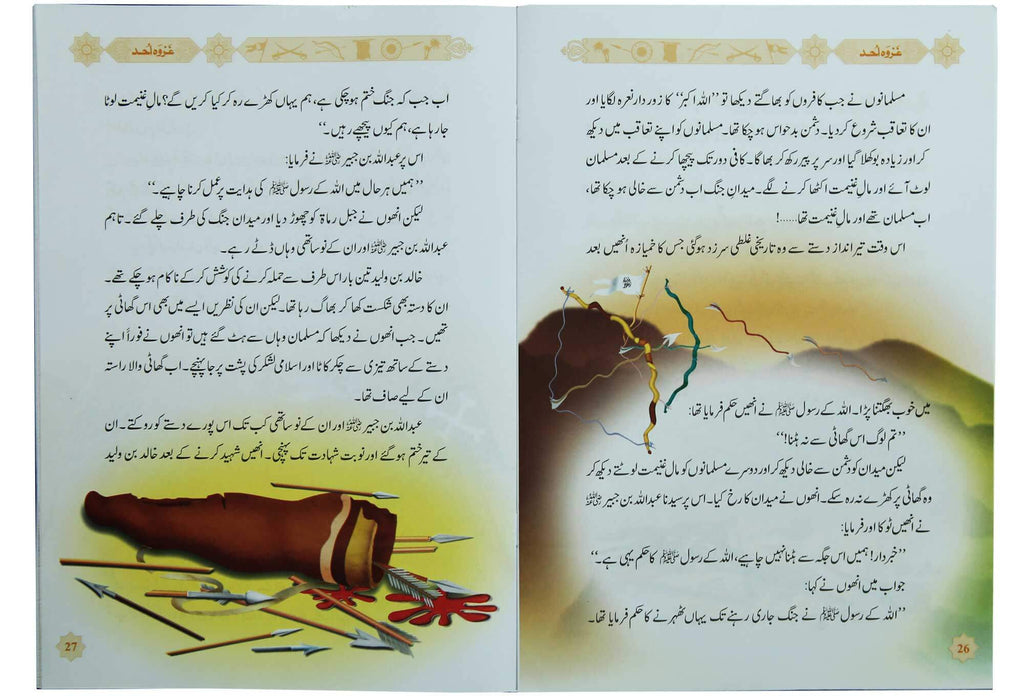 غزوہ اُحد
مسلمانوں نے جب کافروں کو بھاگتے دیکھا تو ’’اللہ اکبر‘‘ کا زور دار نعرہ لگایا اور
ان کا تعاقب شروع کر دیا۔ دشمن بدحواس ہو چکا تھا۔ مسلمانوں کو اپنے تعاقب میں دیکھ
کر اور زیادہ بوکھلا گیا اور سر پر پیر رکھ کر بھاگا۔ کافی دور تک پیچھا کرنے کے بعد مسلمان
لوٹ آئے اور مالِ غنیمت اکٹھا کرنے لگے۔ میدانِ جنگ اب دشمن سے خالی ہو چکا تھا،
اب مسلمان تھے اور مالِ غنیمت تھا......!
اس وقت تیر انداز دستے سے وہ تاریخی غلطی سرزد ہو گئی جس کا خمیازہ اُنھیں بعد
میں خوب بھگتنا پڑا۔ اللہ کے رسول ﷺ نے انھیں حکم فرمایا تھا:
’’تم لوگ اس گھاٹی سے نہ ہٹنا!‘‘
لیکن میدان کو دشمن سے خالی دیکھ کر اور دوسرے مسلمانوں کو مال غنیمت لوٹتے دیکھ کر
وہ گھاٹی پر کھڑے نہ رہ سکے۔ انھوں نے میدان کا رخ کیا۔ اس پر سیدنا عبداللہ بن جبیر رضی اللہ عنہ
نے انھیں ٹوکا اور فرمایا:
’’خبردار! ہمیں اس جگہ سے ہٹنا نہیں چاہیے، اللہ کے رسول ﷺ کا حکم یہی ہے۔‘‘
جواب میں انھوں نے کہا:
’’اللہ کے رسول ﷺ نے جنگ جاری رہنے تک یہاں ٹھہرنے کا حکم فرمایا تھا۔
26
غزوہ اُحد
اب جب کہ جنگ ختم ہو چکی ہے، ہم یہاں کھڑے رہ کر کیا کریں گے؟ مالِ غنیمت لوٹا
جا رہا ہے، ہم کیوں پیچھے رہیں۔‘‘
اس پر عبداللہ بن جبیر رضی اللہ عنہ نے فرمایا:
’’ہمیں ہر حال میں اللہ کے رسول ﷺ کی ہدایت پر عمل کرنا چاہیے۔‘‘
لیکن انھوں نے جبل رماۃ کو چھوڑ دیا اور میدان جنگ کی طرف چلے گئے۔ تاہم
عبداللہ بن جبیر رضی اللہ عنہ اور ان کے نو ساتھی وہاں ڈٹے رہے۔
خالد بن ولید تین بار اس طرف سے حملہ کرنے کی کوشش کر کے ناکام ہو چکے تھے۔
ان کا دستہ بھی شکست کھا کر بھاگ رہا تھا لیکن ان کی نظریں ایسے میں بھی اس گھاٹی پر
تھیں۔ جب انھوں نے دیکھا کہ مسلمان وہاں سے ہٹ گئے ہیں تو انھوں نے فوراً اپنے
دستے کے ساتھ تیزی سے چکر کاٹا اور اسلامی لشکر کی پشت پر جا پہنچے۔ اب گھاٹی والا راستہ
ان کے لیے صاف تھا۔
عبداللہ بن جبیر رضی اللہ عنہ اور ان کے نو ساتھی کب تک اس پورے دستے کو روکتے۔ ان
کے تیر ختم ہو گئے اور نوبت شہادت تک پہنچی۔ انھیں شہید کرنے کے بعد خالد بن ولید
27